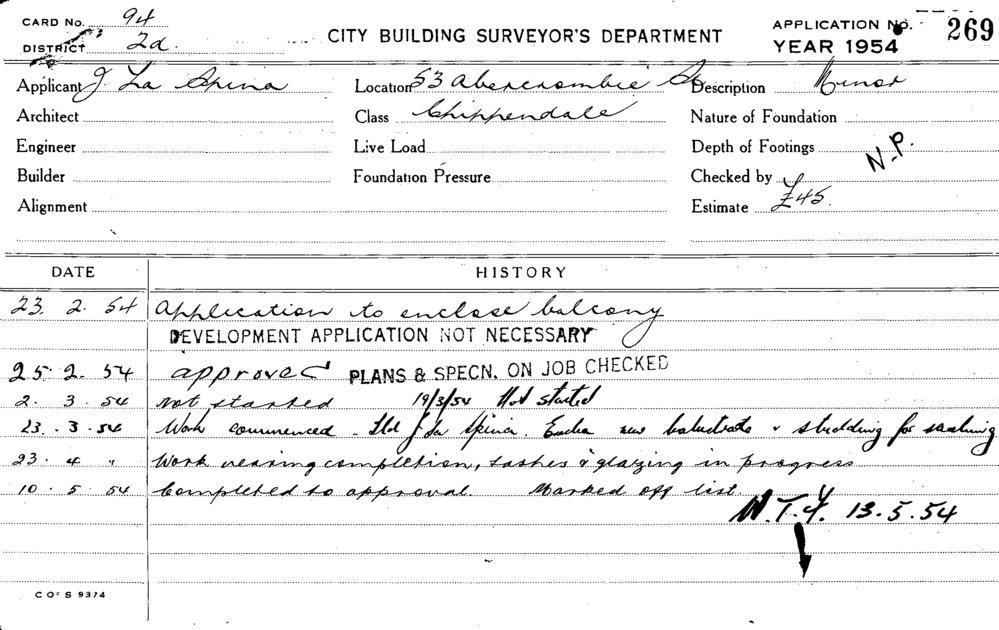 CARD No. 94
DISTRICT 2d.
CITY BUILDING SURVEYOR'S DEPARTMENT
APPLICATION No. 269
YEAR 1954
Applicant J. La Spina
Location 53 Abercrombie St
Description Minor
Architect
Class Chippendale
Nature of Foundation
Engineer
Live Load
Depth of Footings
N.P.
Builder
Foundation Pressure
Checked by
Alignment
Estimate £45.
DATE HISTORY
23. 2. 54 Application to enclose balcony
DEVELOPMENT APPLICATION NOT NECESSARY
25. 2. 54 approved PLANS & SPECN. ON JOB CHECKED
2. 3. 54 Not started 19/3/54 Not started
23. 3. 54 Work commenced. J La Spina. new balustrade & studding for
23. 4 " Work nearing completion, sashes & glazing in progress
10. 5. 54 Completed to approval. Marked off list.
N.T.Y. 13.5.54
C OF S 9374